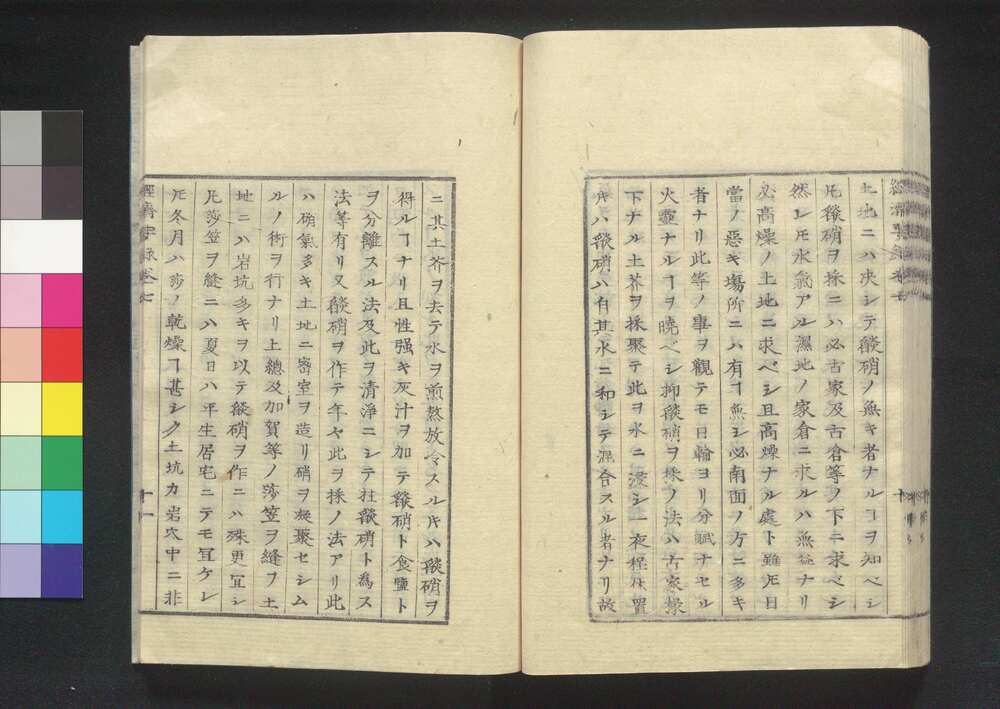 土地ニハ決シテ燄硝ノ無キ者ナルヿヲ知ベシ
凡燄硝ヲ採ニハ必古家及古倉等ノ下ニ求ベシ
然レモ水氣アル濕地ノ家倉ニ求ルハ無益ナリ
必高燥ノ土地ニ求ベシ且高燥ナル處ト雖モ日
當ノ惡キ塲所ニハ有ヿ無シ必南面ノ方ニ多キ
者ナリ此等ノ事ヲ觀テモ日輪ヨリ分賦ナセル
火靈ナルヿヲ曉ベシ抑燄硝ヲ採ノ法ハ古家椽
下ナル土芥ヲ採聚テ此ヲ水ニ浸シ一夜程仕置
片ハ燄硝ハ自其水ニ和シテ混合スル者ナリ故
ニ其土芥ヲ去テ水ヲ煎熬放冷スル片ハ燄硝ヲ
得ルヿナリ且性强キ灰汁ヲ加テ燄硝ト食鹽ト
ヲ分離スル法及此ヲ清淨ニシテ柱燄硝ト爲ス
法等有リ又燄硝ヲ作テ年々此ヲ採ノ法アリ此
ハ硝氣多キ土地ニ密室ヲ造リ硝ヲ凝聚セシム
ルノ術ヲ行ナリ上總及加賀等ノ莎笠ヲ縫フ土
地ニハ岩坑多キヲ以テ燄硝ヲ作ニハ殊更宜シ
凡莎笠ヲ縫ニハ夏日ハ平生居宅ニテモ宜ケレ
圧冬月ハ莎ノ乾燥ヿ甚シク土坑カ岩穴中ニ非
經濟要録卷七
十一